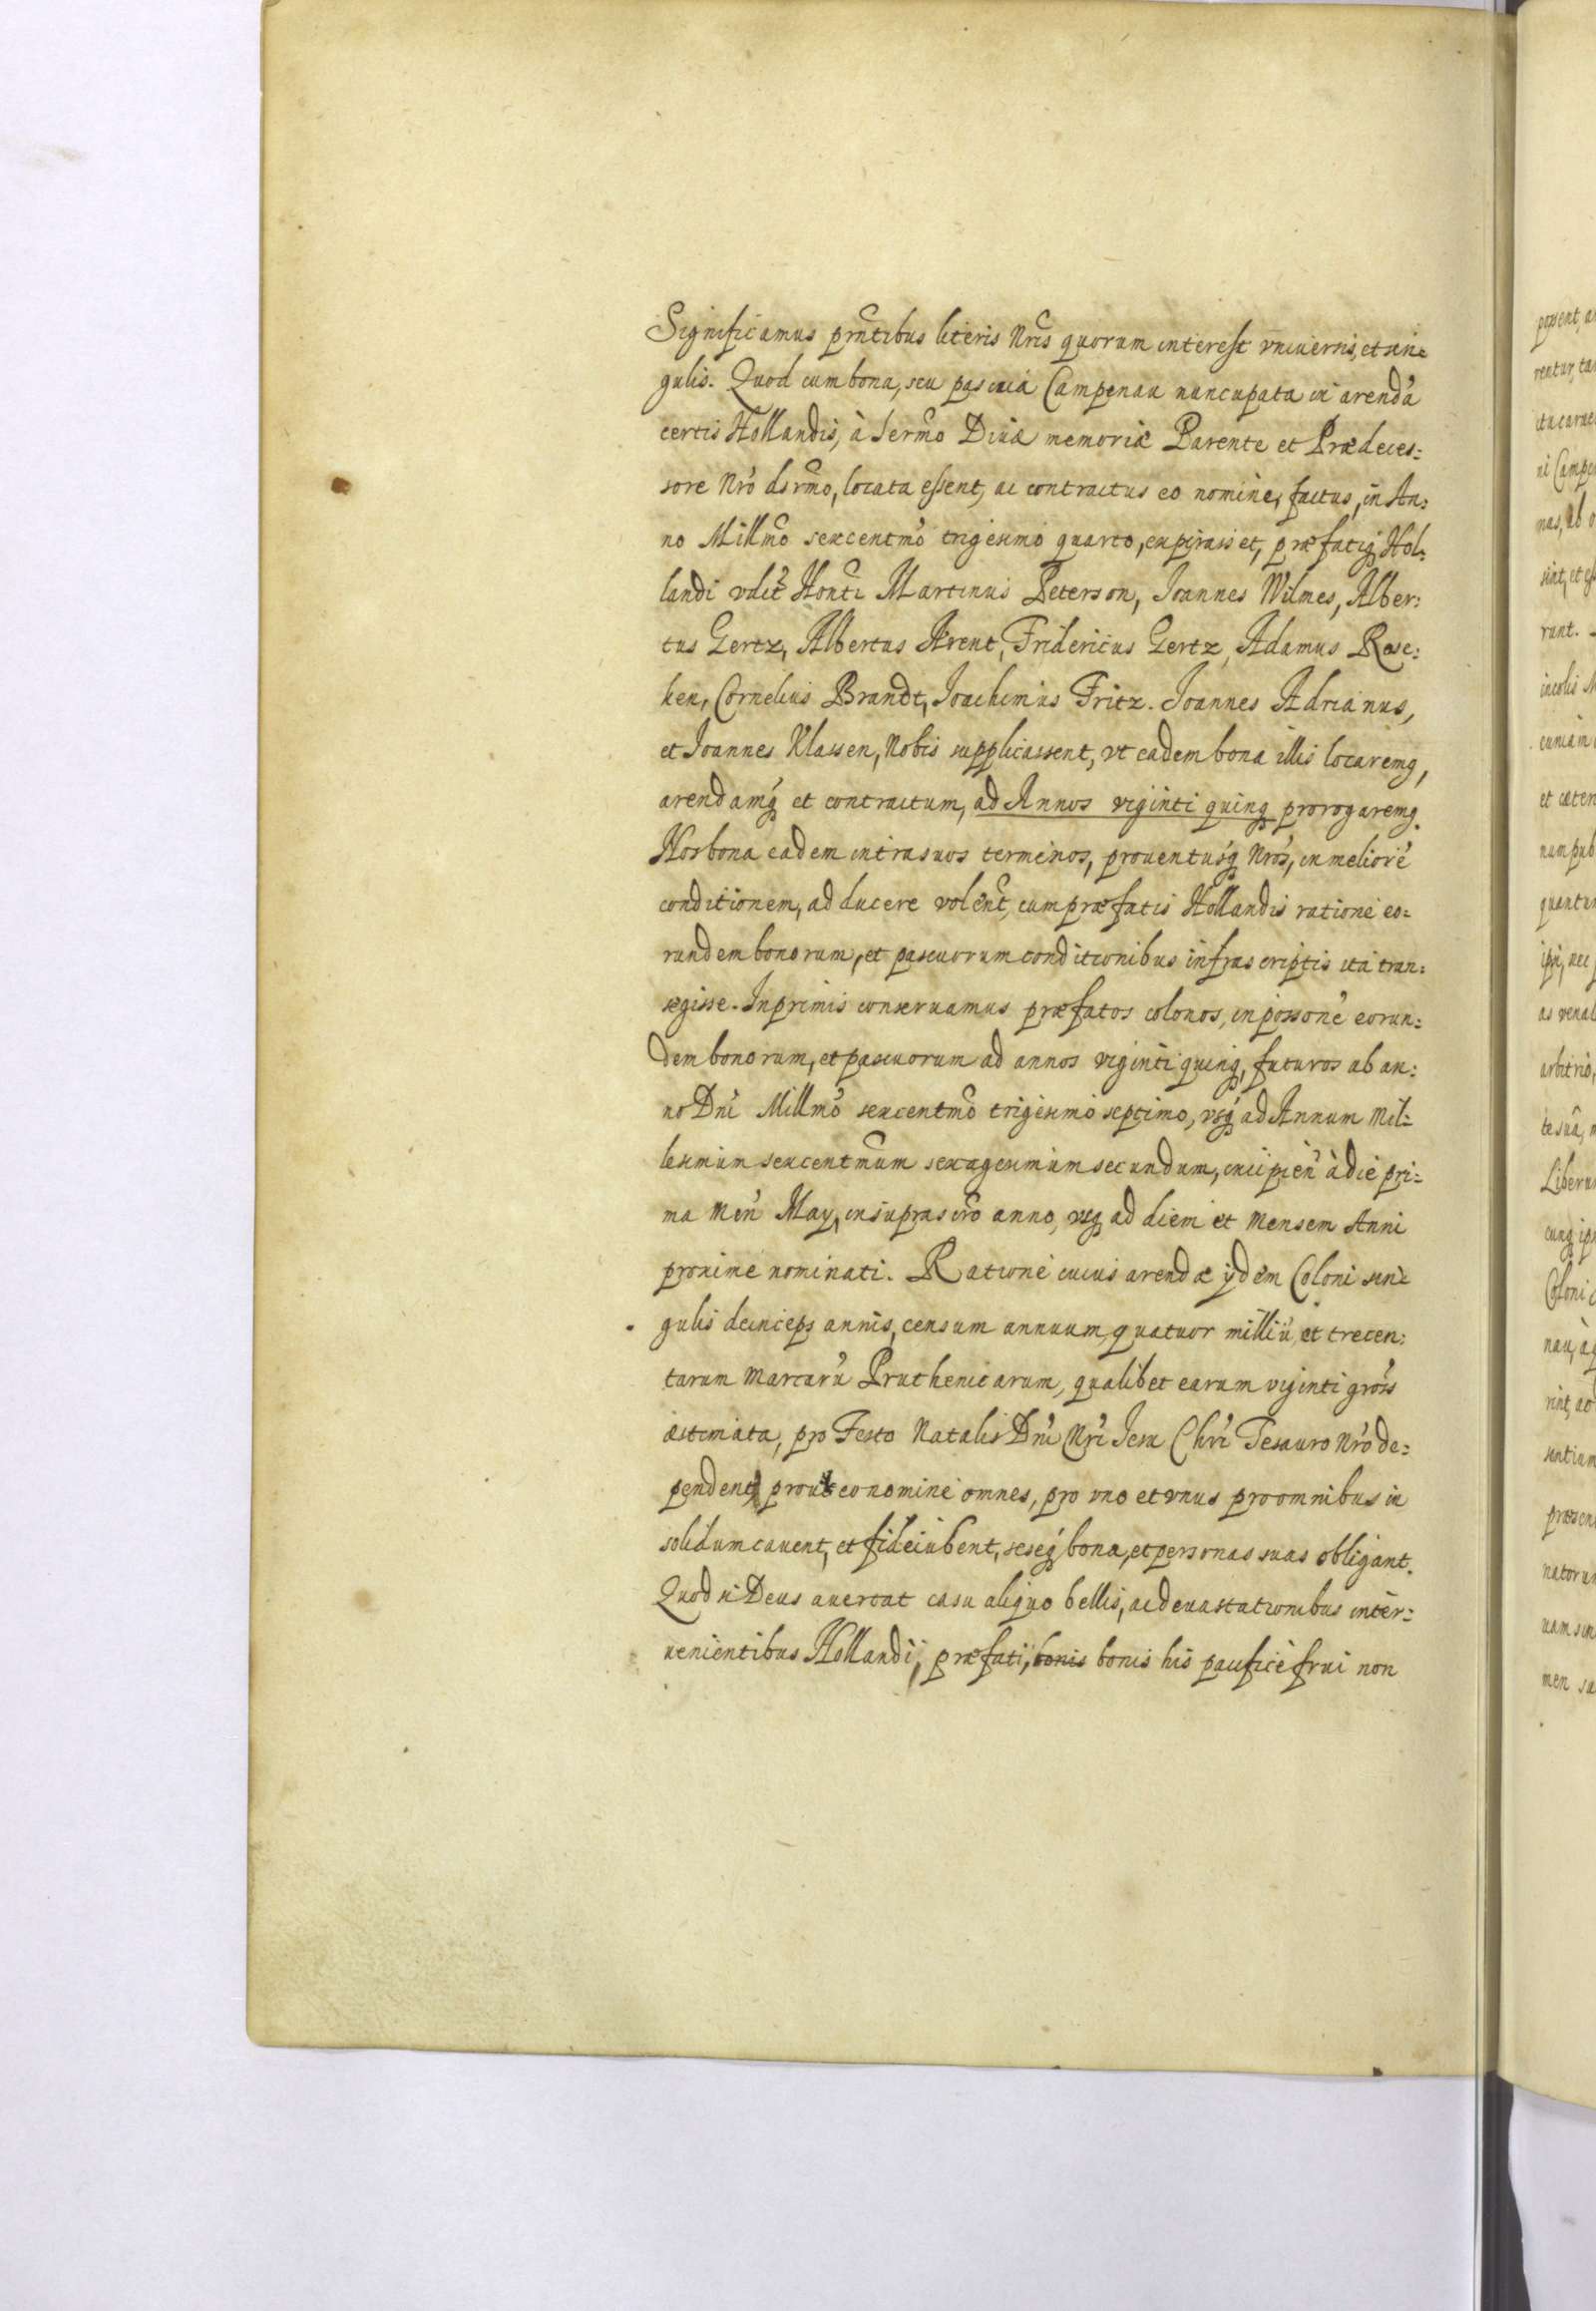 Significamus prntibus literis Nris quorum interest vniuersis, et sin=
gulis. Quod cum bona, seu pascua Campenau nuncupata in arendã
certis Hollandis, à Sermo Diuæ memoriæ Parente et Prædeces=
sore Nro dsrmo, locata essent, ac contractus eo nomine, factus, in An=
no Millmo sexcentmo trigesimo quarto, expirasset, præfatiq Hol=
landi vdlt Honti Martinus Peterson, Ioannes Wilmes, Alber=
tus Gertz, Albertus Arent, Fridericus Gertz, Adamus Rose=
ken, Cornelius Brandt, Ioachimus Fritz. Ioannes Adrianus,
et Ioannes Klassen, Nobis supplicassent, vt eadem bona illis locaremq,
arendamq et contractum, ad Annos viginti quinq prorogaremq.
Nos bona eadem intra suos terminos, prouentusq Nros, in meliorẽ
conditionem, adducere volent, cum præfatis Hollandis ratione eo=
rundem bonorum, et pascuorum conditionibus infrascriptis ita tran=
segisse. Inprimis conseruamus præfatos colonos, in possone eorun=
dem bonorum, et pascuorum ad annos viginti quinq, futuros ab an=
no Dni Millmo sexcentmo trigesimo septimo, vsq ad Annum Mil=
lesimum sexcentmum sexagesimum secundum, incipien à die pri=
ma Men May, in suprascro anno, vsq ad diem et Mensem Anni
proxime nominati. Ratione cuius arendæ ijdem Coloni sin=
gulis deinceps annis, censum annuum, quatuor milliũ, et trecen=
tarum Marcarũ Pruthenicarum, qualibet earum viginti gross
æstimata, pro Festo Natalis Dni Nri Iesu Chri Tesauro Nro de=
pendent, prout eo nomine omnes, pro vno et vnus pro omnibus in
solidum cauent, et fideiubent, seseq bona, et personas suas obligant.
Quod si Deus auertat casu aliquo bellis, ac deuastationibus inter=
uenientibus Hollandi, præfati, bonis bonis his pacificè frui non
possent, a
rentur, ta
ni Campe
sint, et
runt.
incolis
cuniam
et cæter
num pub
quantu
ipsi, nec
as venal
arbitrio,
te suâ,
Liberu
cunq ip
Coloni
nau, à
rint, ac
sentium
præsen
natorum
men